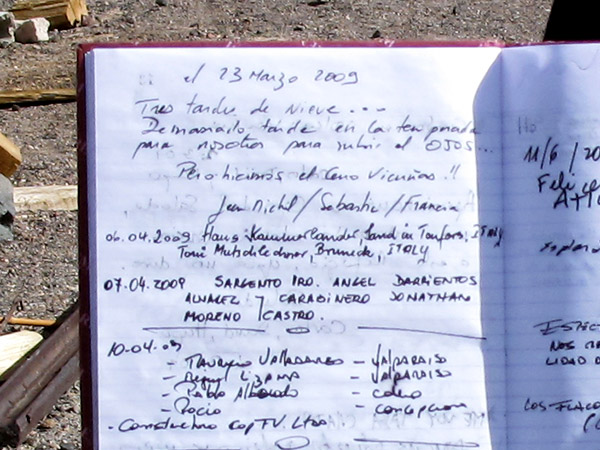 el 23 Marzo 2009
Tres tardes de nieve ...
Demasiado tarde en la temporada
para nosotros para subir el OJOS...
Pero hicimos el Cerro Vicuñas !!
Jean Michel / Sebastie / Francia
06.04.2009 Hans Kammerlander, Sand in Taufers, ITALY
Toni Mutschlechner, Bruneck, ITALY
07.04.2009 SARGENTO 1RO. ANGEL BARRIENTOS
ALVAREZ Y CARABINERO JONATHAN
MORENO CASTRO.
10-04-09
- Mauricio Valladares - VALPARAISO
- Miguel Lizama - VALPARAISO
- Pablo
- Rocio - concepcion
- Constructora CopFV. Ltda
Ho
11/6/20
Felice
ESPEC
NOS
LIDAD D
LOS FLACO